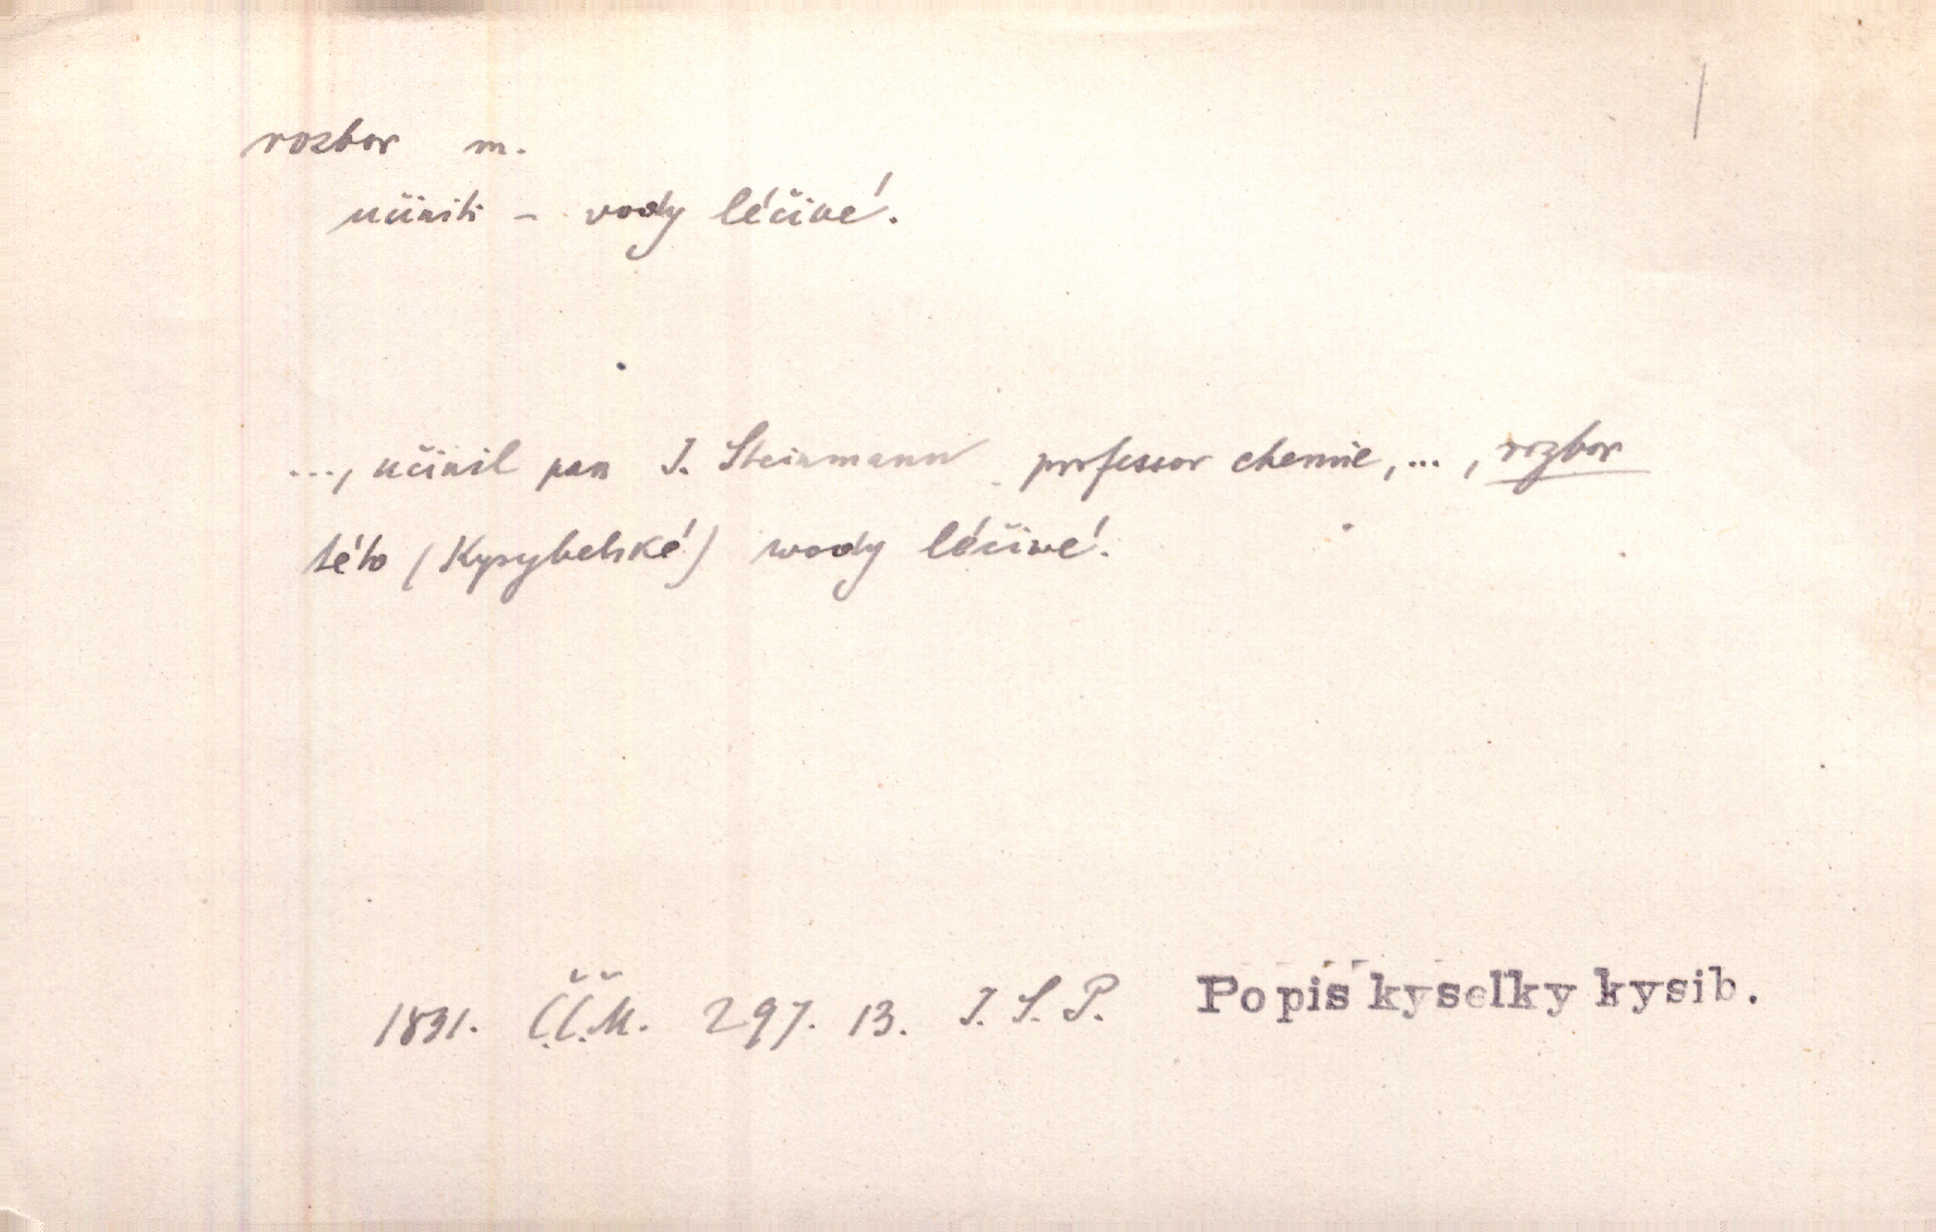 rozbor m.
učiniti – vody léčivé.
..., učinil pan J. Steinmann professor chemie, ..., rozbor
této (Kysybelské) wody léčiwé.
1831. Č.Č.M. 297. 13. J. S. P. Popis kyselky kysib.